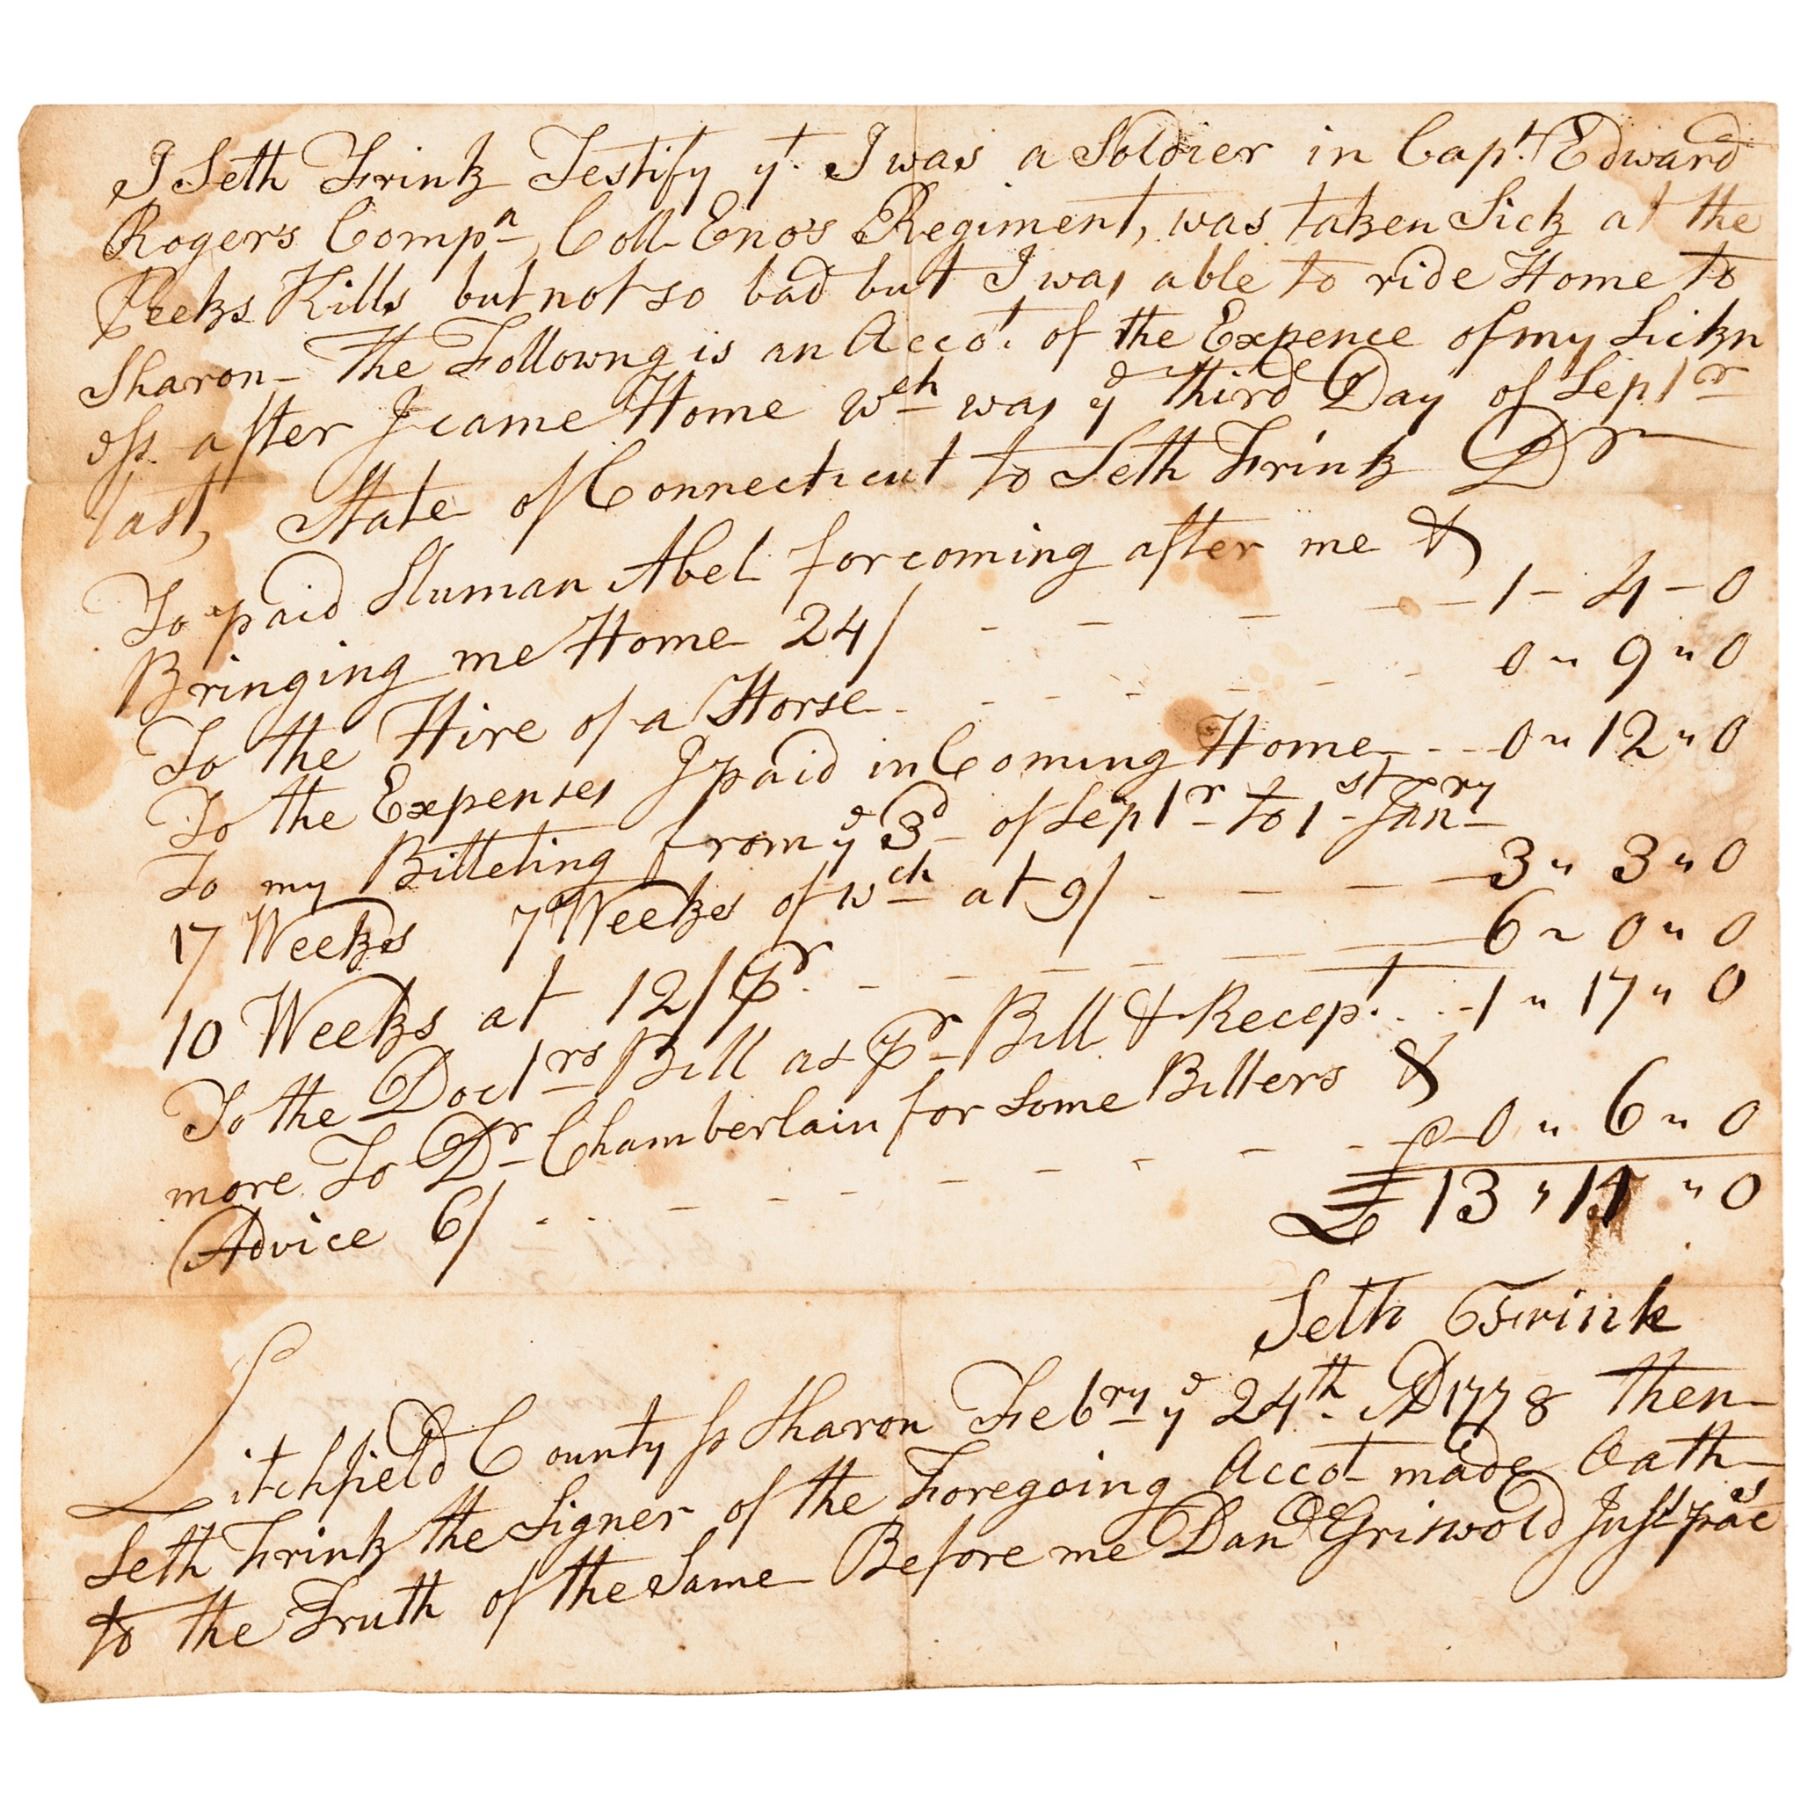 I Seth Frink Testify yt. I was a Soldier in Capt. Edward
Rogers Compa, Coll Eno's Regiment, was taken Sick at the
Peeks Kills but not so bad but I was able to ride Home to
Sharon - The Followng is an Accot. of the Expence of my Sickn
ess after I came Home wch was ye third Day of Septr
last, State of Connecticut to Seth Frink Dr
To paid Sluman Abel for coming after me &
Bringing me Home 24/ - - - - - 1 - 4 - 0
To the Hire of a Horse - - - - - - 0 " 9 " 0
To the Expenses I paid in Coming Home - - - 0 " 12 " 0
To my Billeting from ye 3d of Septr to 1st Janry
17 Weeks 7 Weeks of wch at 9/ - - - - 3 " 3 " 0
10 Weeks at 12/ pr - - - - - - 6 " 0 " 0
To the Doctrs Bill as pr Bill & Recept. - - 1 " 17 " 0
more To Dr Chamberlain for Some Bitters &
Advice 6/ - - - - - - - - 0 " 6 " 0
£ 13 " 11 " 0
Seth Frink
Litchfield County ss Sharon Febry ye 24th. AD 1778 then
Seth Frink the Signer of the Foregoing Accot made Oath
to the Truth of the Same Before me Danl Griswold Just pace